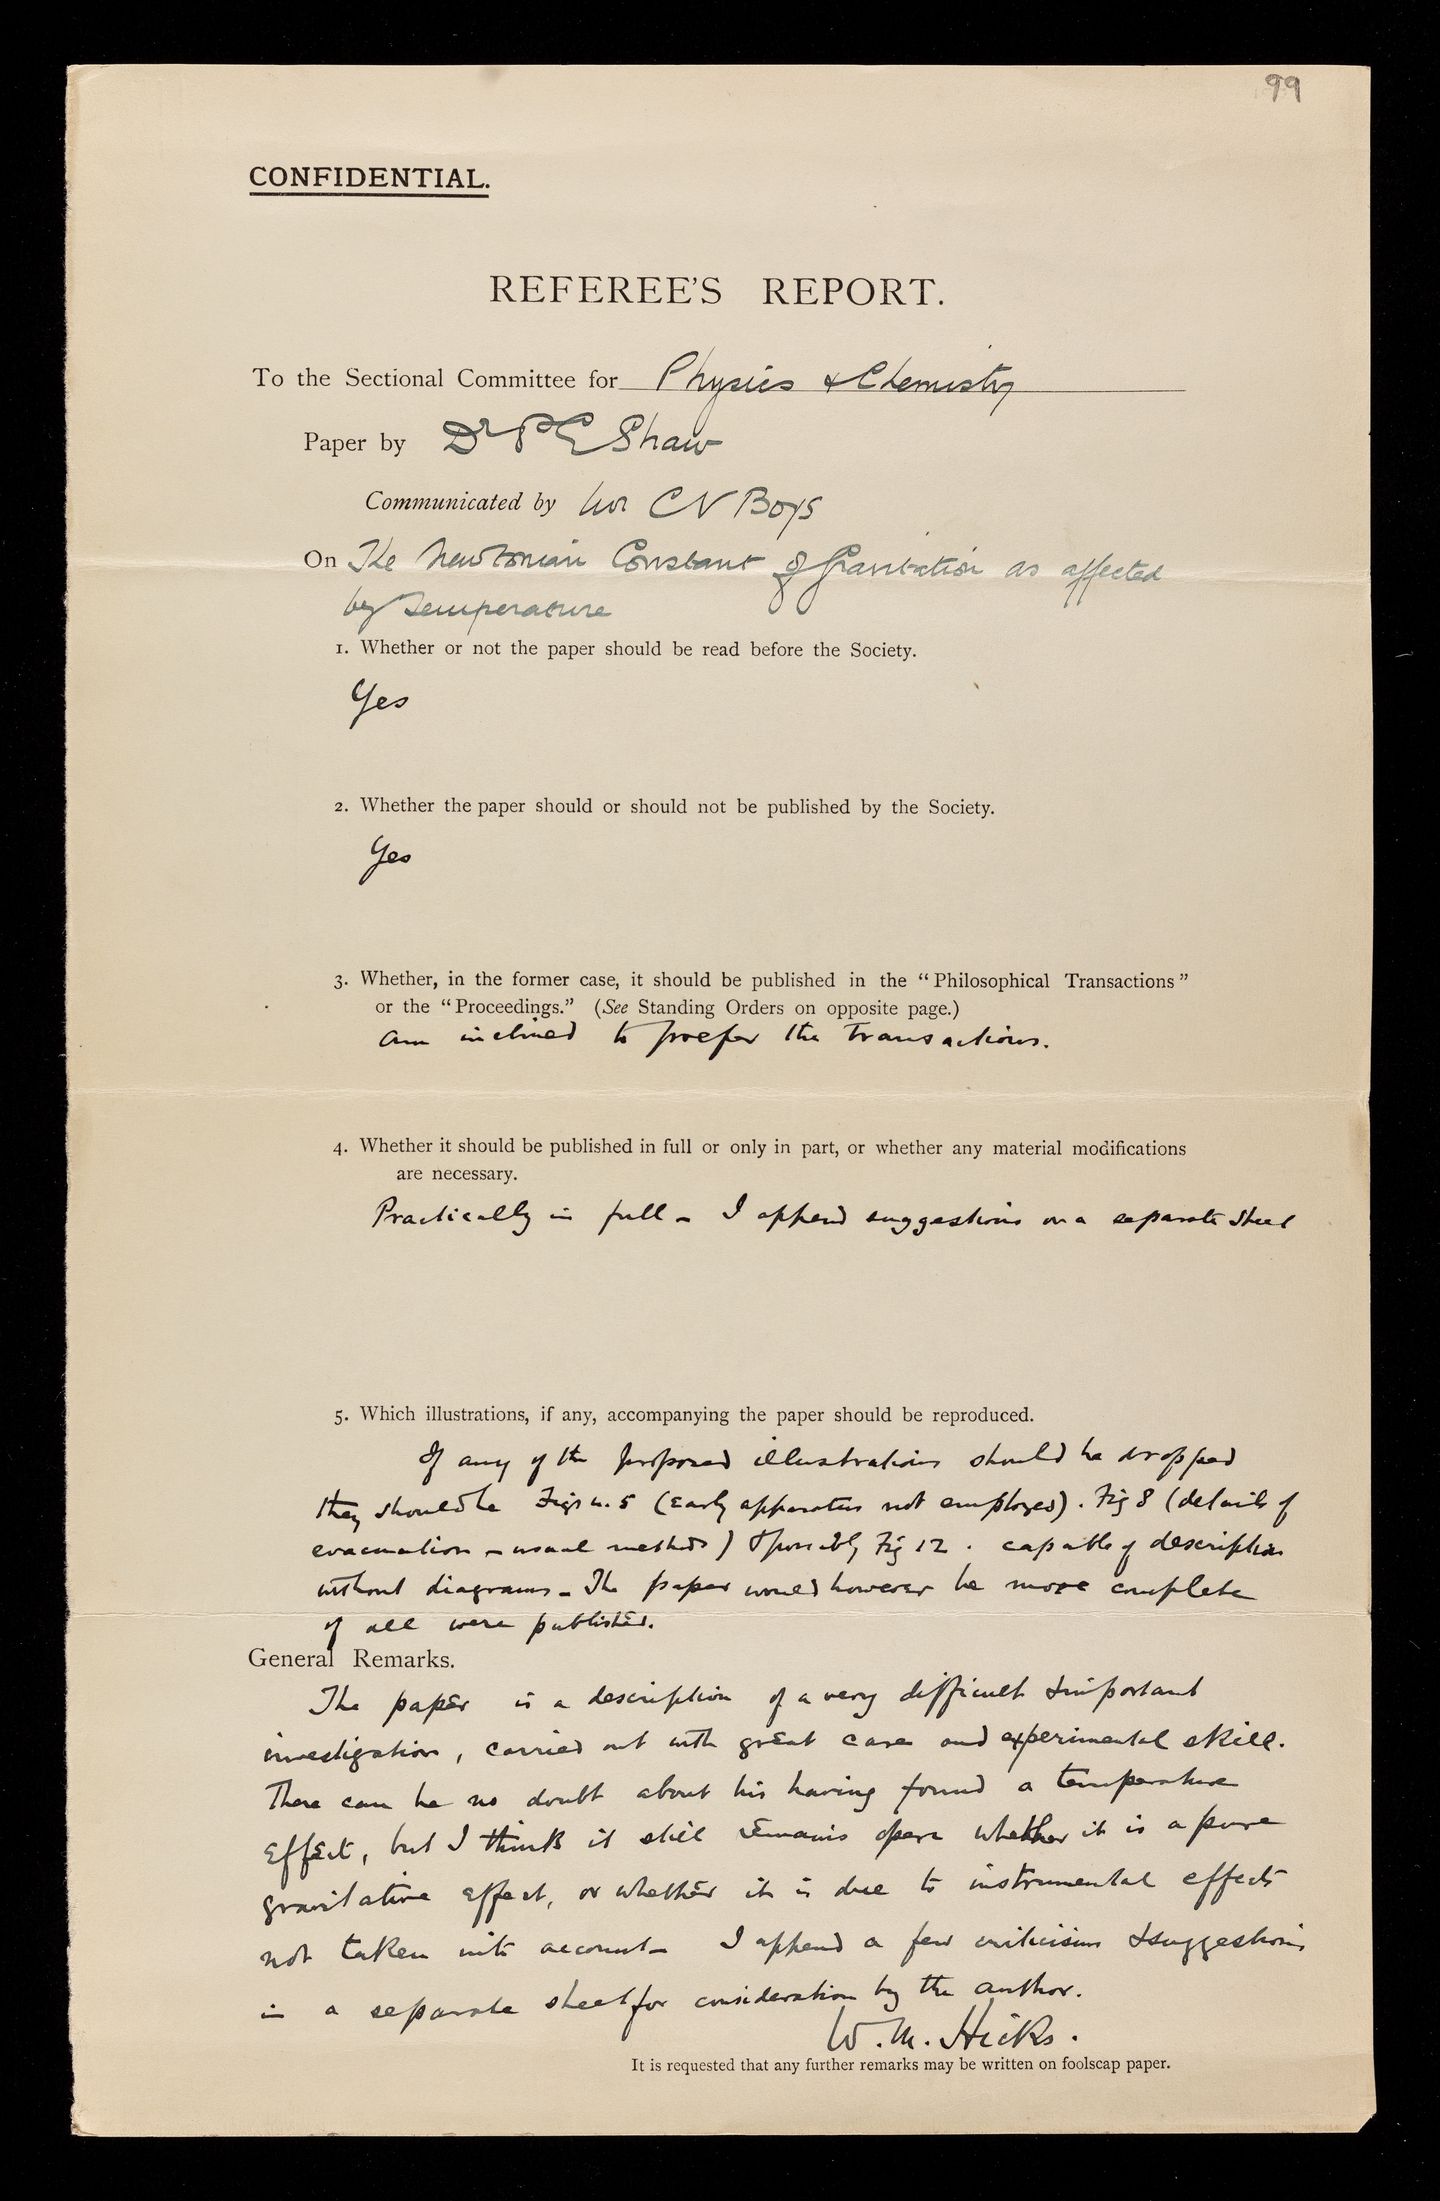 99
CONFIDENTIAL.
REFEREE'S REPORT.
To the Sectional Committee for Physics & Chemistry
Paper by Dr P E Shaw
Communicated by C V Boys
On The Newtonian Constant of Gravitation as affected
by Temperature
1. Whether or not the paper should be read before the Society.
Yes
2. Whether the paper should or should not be published by the Society.
Yes
3. Whether, in the former case, it should be published in the "Philosophical Transactions"
or the "Proceedings." (See Standing Orders on opposite page.)
am inclined to prefer the Transactions.
4. Whether it should be published in full or only in part, or whether any material modifications
are necessary.
Practically in full - I append suggestions on a separate sheet
5. Which illustrations, if any, accompanying the paper should be reproduced.
If any of the proposed illustrations should be dropped
they should be Figs 4. 5 (Early apparatus not employed). Fig 8 (details of
evacuation - usual methods) & possibly Fig 12. capable of description
without diagrams - The paper would however be more complete
if all were published.
General Remarks.
The paper is a description of a very difficult & important
investigation, carried out with great care and experimental skill.
There can be no doubt about his having found a temperature
effect, but I think it still remains open whether it is a pure
gravitative effect, or whether it is due to instrumental effects
not taken into account - I append a few criticisms & suggestions
in a separate sheet for consideration by the author.
W. M. Hicks.
It is requested that any further remarks may be written on foolscap paper.